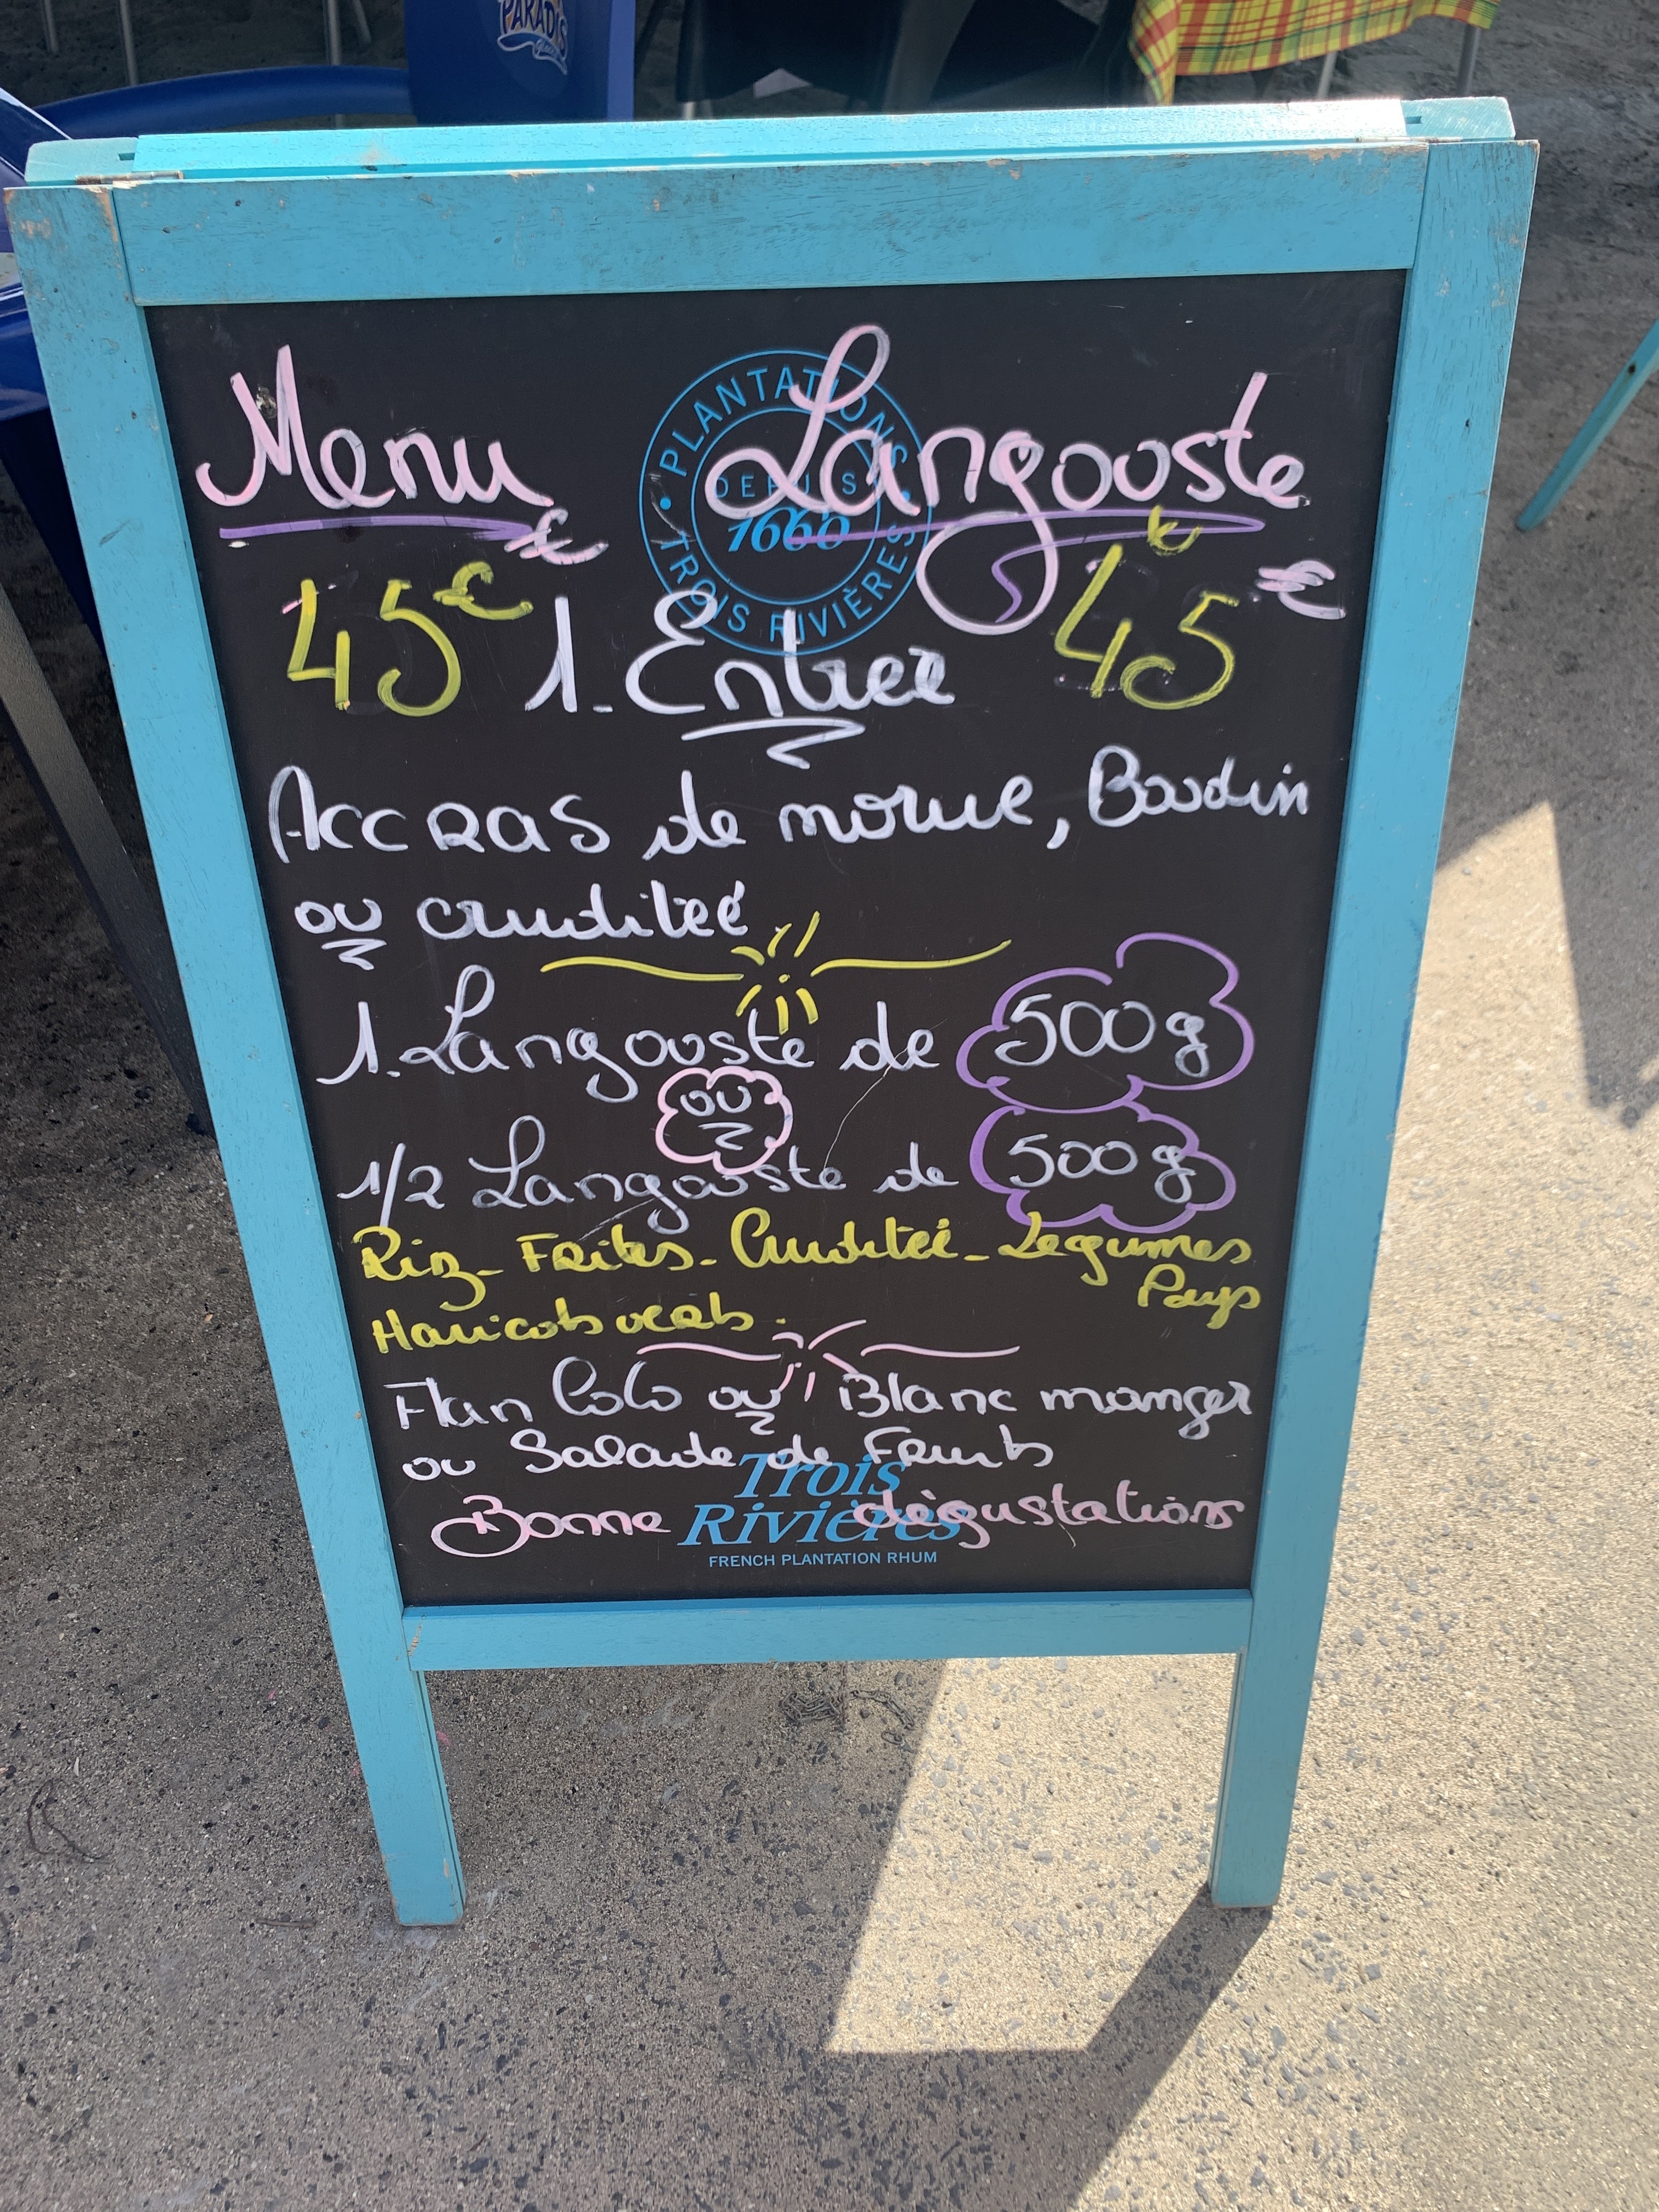 PARADIS
PLANTATIONS
DEPUIS
1660
TROIS RIVIÈRES
Menu Langouste
45€ 45€
1. Entrée
Accras de morue, Boudin
ou cruditeé
1. Langouste de 500g
ou
1/2 Langouste de 500g
Riz - Frites - Cruditeé - Legumes
Pays
Haricots verts.
Flan Coco ou Blanc manger
ou Salade de Fruits
Bonne dégustations
Trois
Rivières
FRENCH PLANTATION RHUM